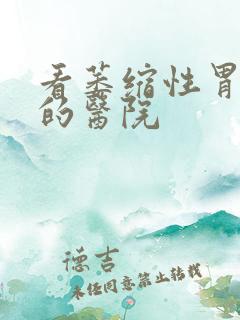 看萎缩性胃
的醫院
德吉
未经同意禁止转载